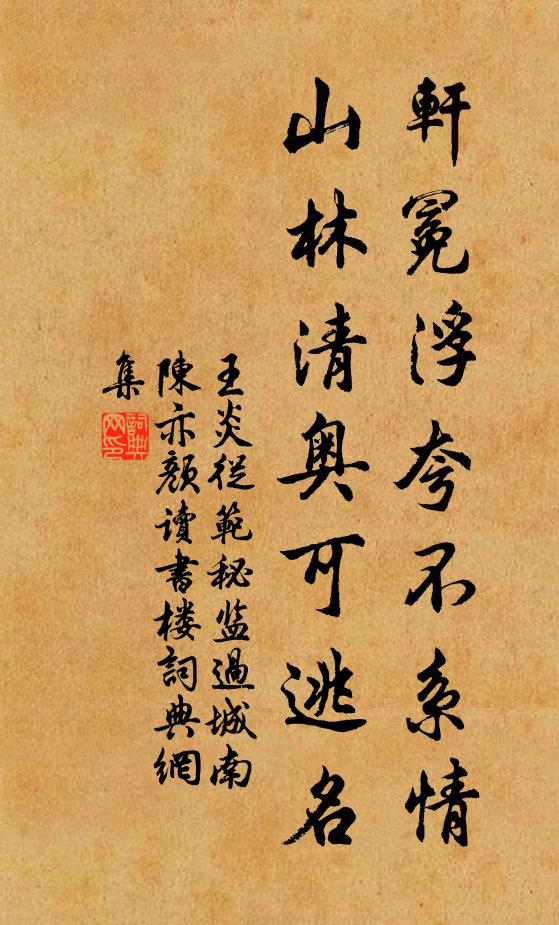 軒冕浮夸不系情
山林清奧可逃名
王炎從範秘监過城南
陳亦顏讀書楼詞典網
集
詞典
网印